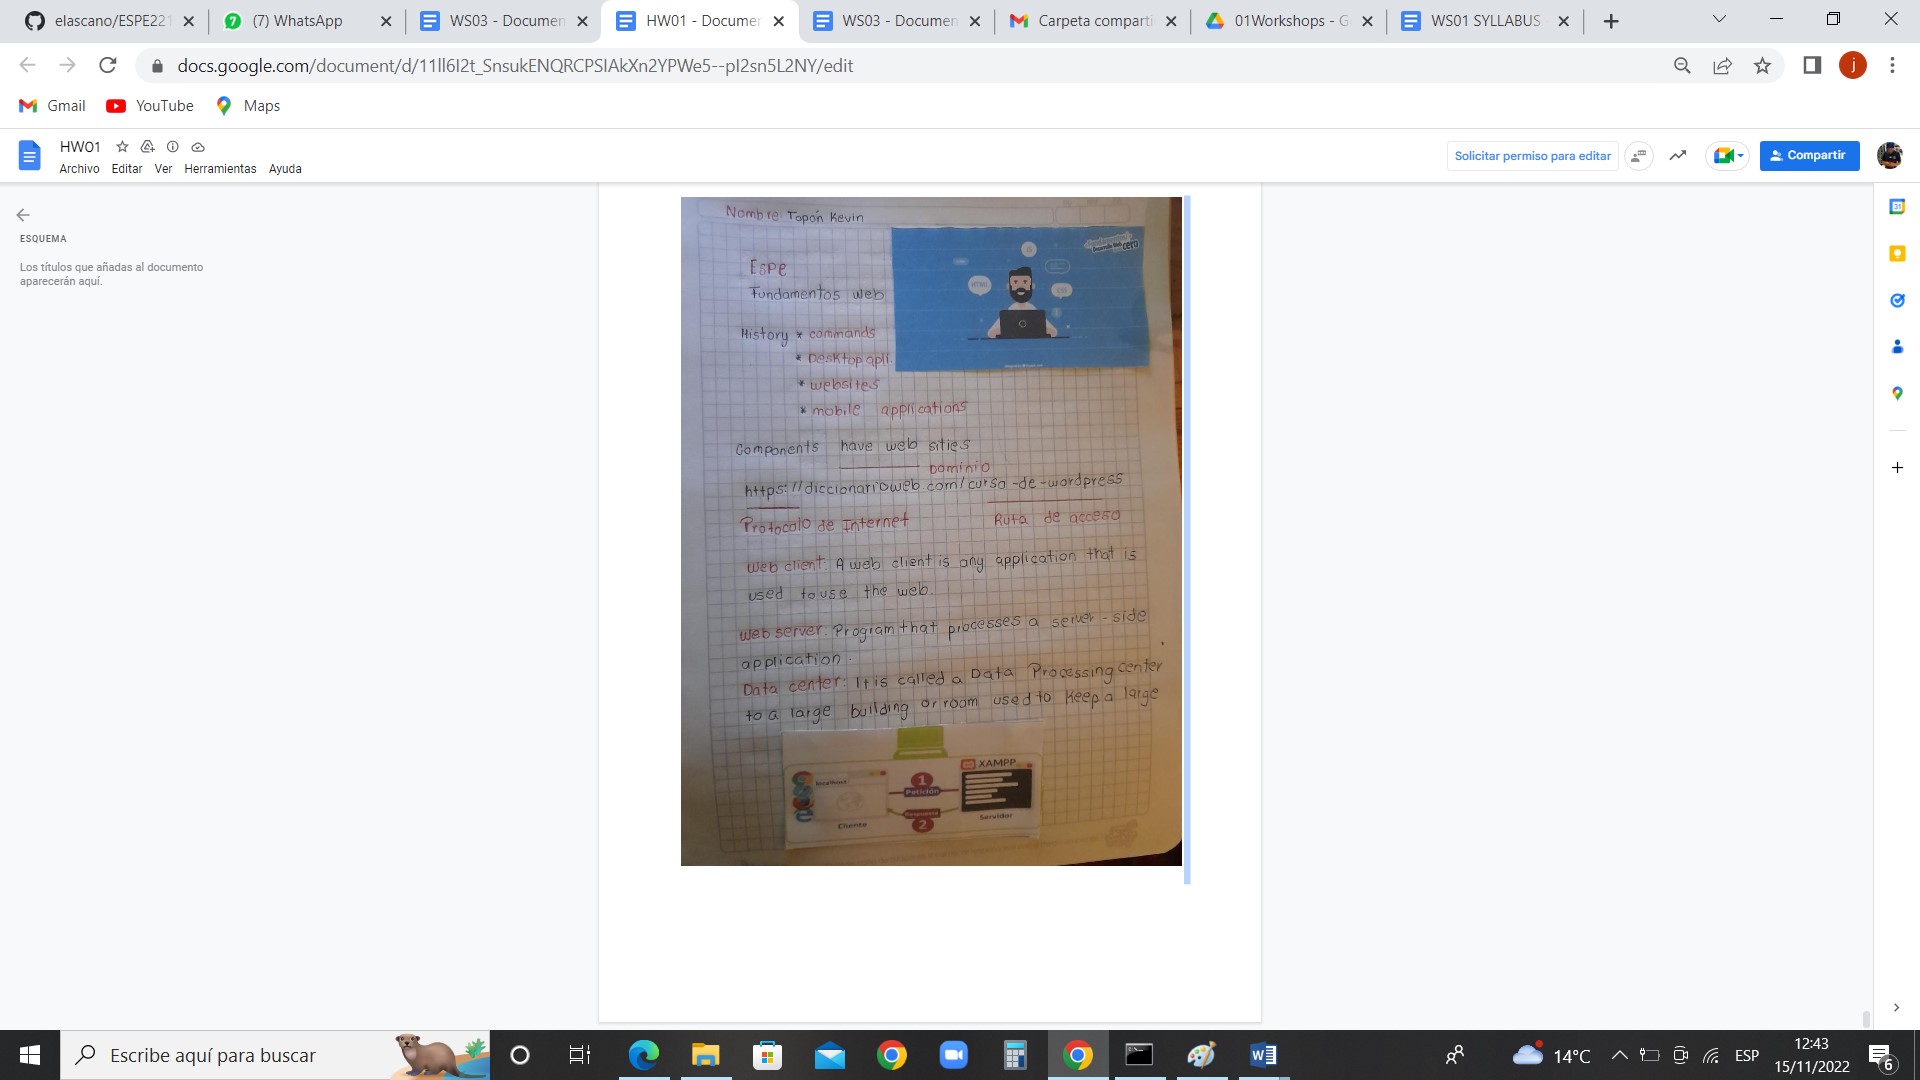 elascano/ESPE221
(7) WhatsApp
WS03 - Documen
HW01 - Documen
WS03 - Documen
Carpeta comparti
01Workshops - G
WS01 SYLLABUS
docs.google.com/document/d/11ll6I2t_SnsukENQRCPSIAkXn2YPWe5--pI2sn5L2NY/edit
j
Gmail
YouTube
Maps
HW01
Archivo Editar Ver Herramientas Ayuda
Solicitar permiso para editar
Compartir
ESQUEMA
Los títulos que añadas al documento
aparecerán aquí.
Nombre: Topón Kevin
Espe
Fundamentos web
HTML
CSS
cero
History * commands
* Desktop apli
* websites
* mobile applications
Components have web sities
Dominio
https://diccionarioweb.com/curso-de-wordpress
Protocalo de Internet
Ruta de acceso
Web client: A web client is any application that is
used to use the web.
Web server: Program that processes a server-side
application.
Data center: It is called a Data Processing center
to a large building or room used to keep a large
localhost
1
Petición
XAMPP
Respuesta
2
Cliente
Servidor
Escribe aquí para buscar
14°C
ESP
12:43
15/11/2022
6